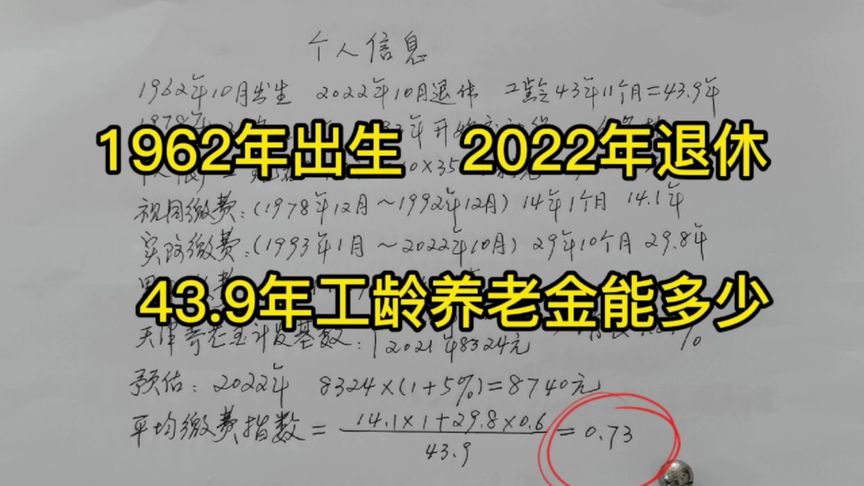 个人信息
1962年10月出生 2022年10月退休 工龄43年11个月=43.9年
1962年出生 2022年退休
视同缴费:(1978年12月~1992年12月) 14年1个月 14.1年
实际缴费:(1993年1月~2022年10月) 29年10个月 29.8年
43.9年工龄养老金能多少
天津养老金计发基数: 2021年8324元
预估: 2022年 8324×(1+5%)=8740元
平均缴费指数= 14.1×1+29.8×0.6 / 43.9 = 0.73